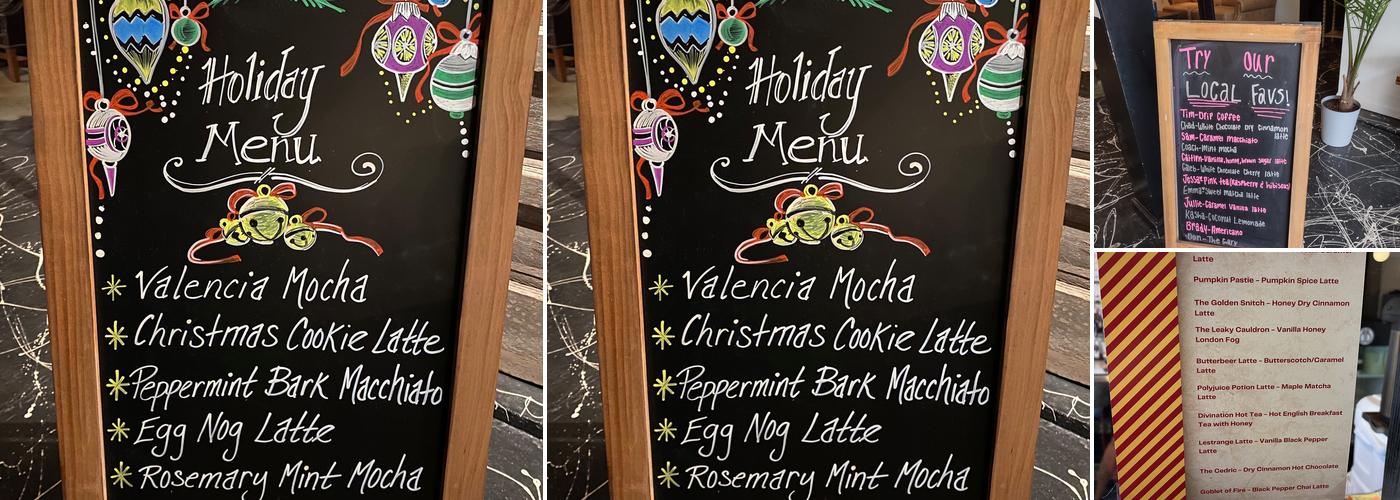 Holiday
Menu
Valencia Mocha
Christmas Cookie Latte
Peppermint Bark Macchiato
Egg Nog Latte
Rosemary Mint Mocha
Holiday
Menu
Valencia Mocha
Christmas Cookie Latte
Peppermint Bark Macchiato
Egg Nog Latte
Rosemary Mint Mocha
Try our
Local Favs!
Tim-Drip Coffee
Chad-White Chocolate Dry Cinnamon
latte
Sam-Caramel Macchiato
Coach-Mint Mocha
Caitlyn-Vanilla, honey, brown sugar latte
Caleb-White Chocolate Cherry latte
Jessa-Pink tea (raspberry & hibiscus)
Emma-Sweet matcha latte
Julie-Caramel Vanilla latte
Kasha-Coconut Lemonade
Brady-Americano
Don-The Gary
Latte
Pumpkin Pastie – Pumpkin Spice Latte
The Golden Snitch – Honey Dry Cinnamon
Latte
The Leaky Cauldron – Vanilla Honey
London Fog
Butterbeer Latte – Butterscotch/Caramel
Latte
Polyjuice Potion Latte – Maple Matcha
Latte
Divination Hot Tea – Hot English Breakfast
Tea with Honey
Lestrange Latte – Vanilla Black Pepper
Latte
The Cedric – Dry Cinnamon Hot Chocolate
Goblet of Fire – Black Pepper Chai Latte